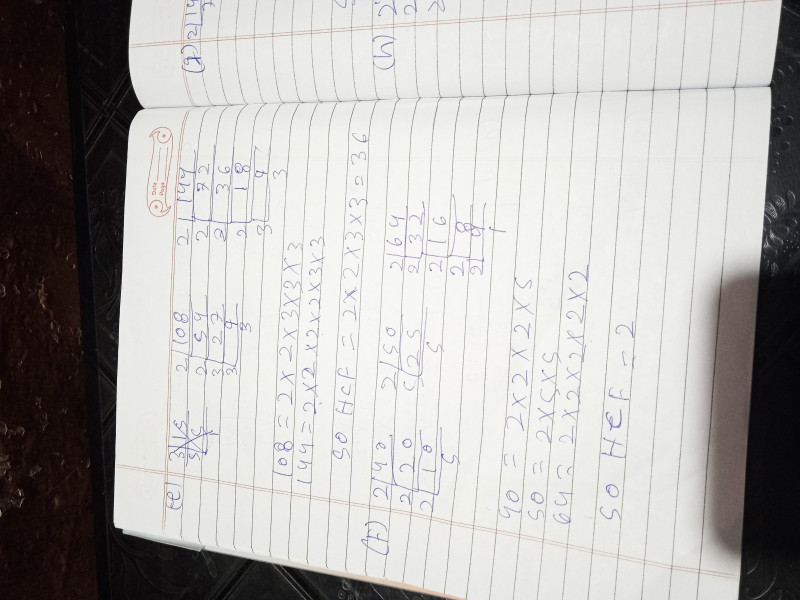 Date
Page
(e) 2|108 2|144
2|54 2|72
3|27 2|36
3|9 2|18
3 3|9
3
108 = 2×2×3×3×3
144 = 2×2×2×2×3×3
SO HCF = 2×2×3×3 = 36
(F) 2|40 2|50 2|64
2|20 5|25 2|32
2|10 5 2|16
5 2|8
2|4
40 = 2×2×2×5
50 = 2×5×5
64 = 2×2×2×2×2×2
SO HCF = 2
(g) 2|14
(h) 2
2
2